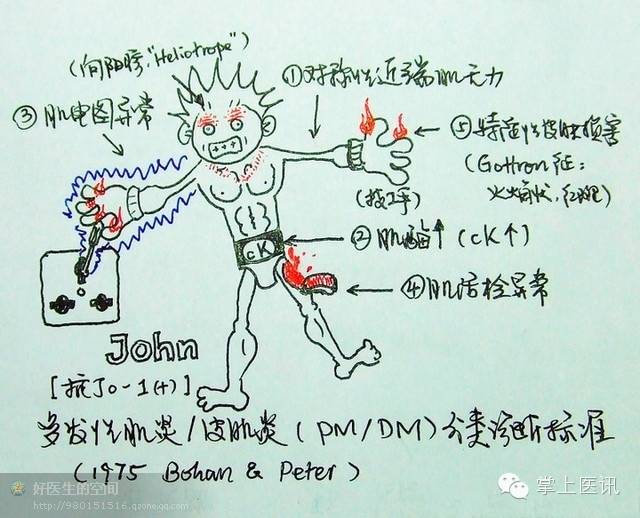 (向阳疹,"Heliotrope")
①对称性近端肌无力
③肌电图异常
⑤特征性皮肤损害
(Gottron征:
火焰状,红斑)
(技工手)
②肌酶↑(CK↑)
CK
④肌活检异常
John
[抗Jo-1(+)]
多发性肌炎/皮肌炎(PM/DM)分类诊断标准
(1975 Bohan & Peter)
好医生的空间
http://980151516.qzone.qq.com
掌上医讯